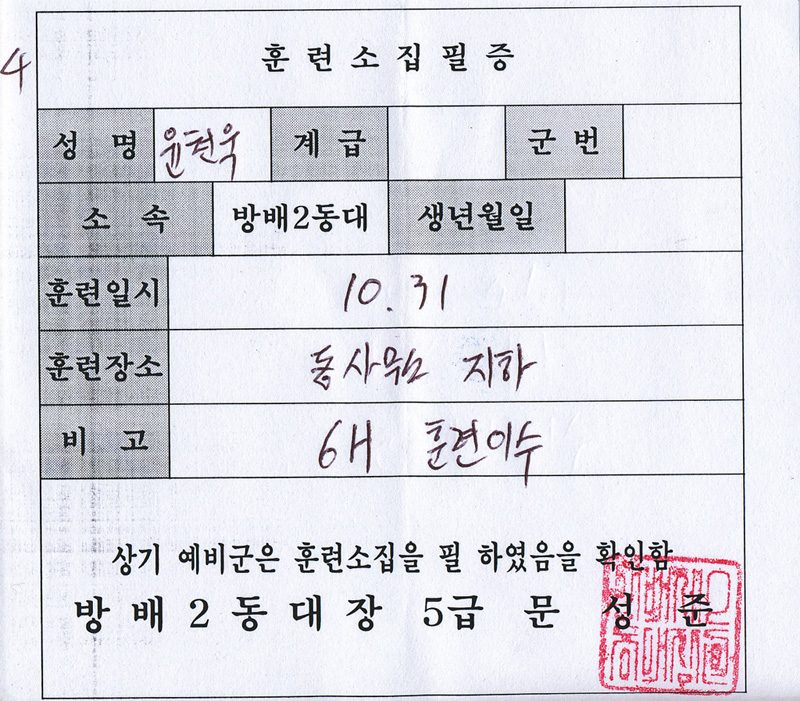 4
훈련소집필증
성 명 윤현욱 계급 군번
소속 방배2동대 생년월일
훈련일시 10.31
훈련장소 동사무소 지하
비고 6H 훈련이수
상기 예비군은 훈련소집을 필 하였음을 확인함
방배2동대장 5급 문성준